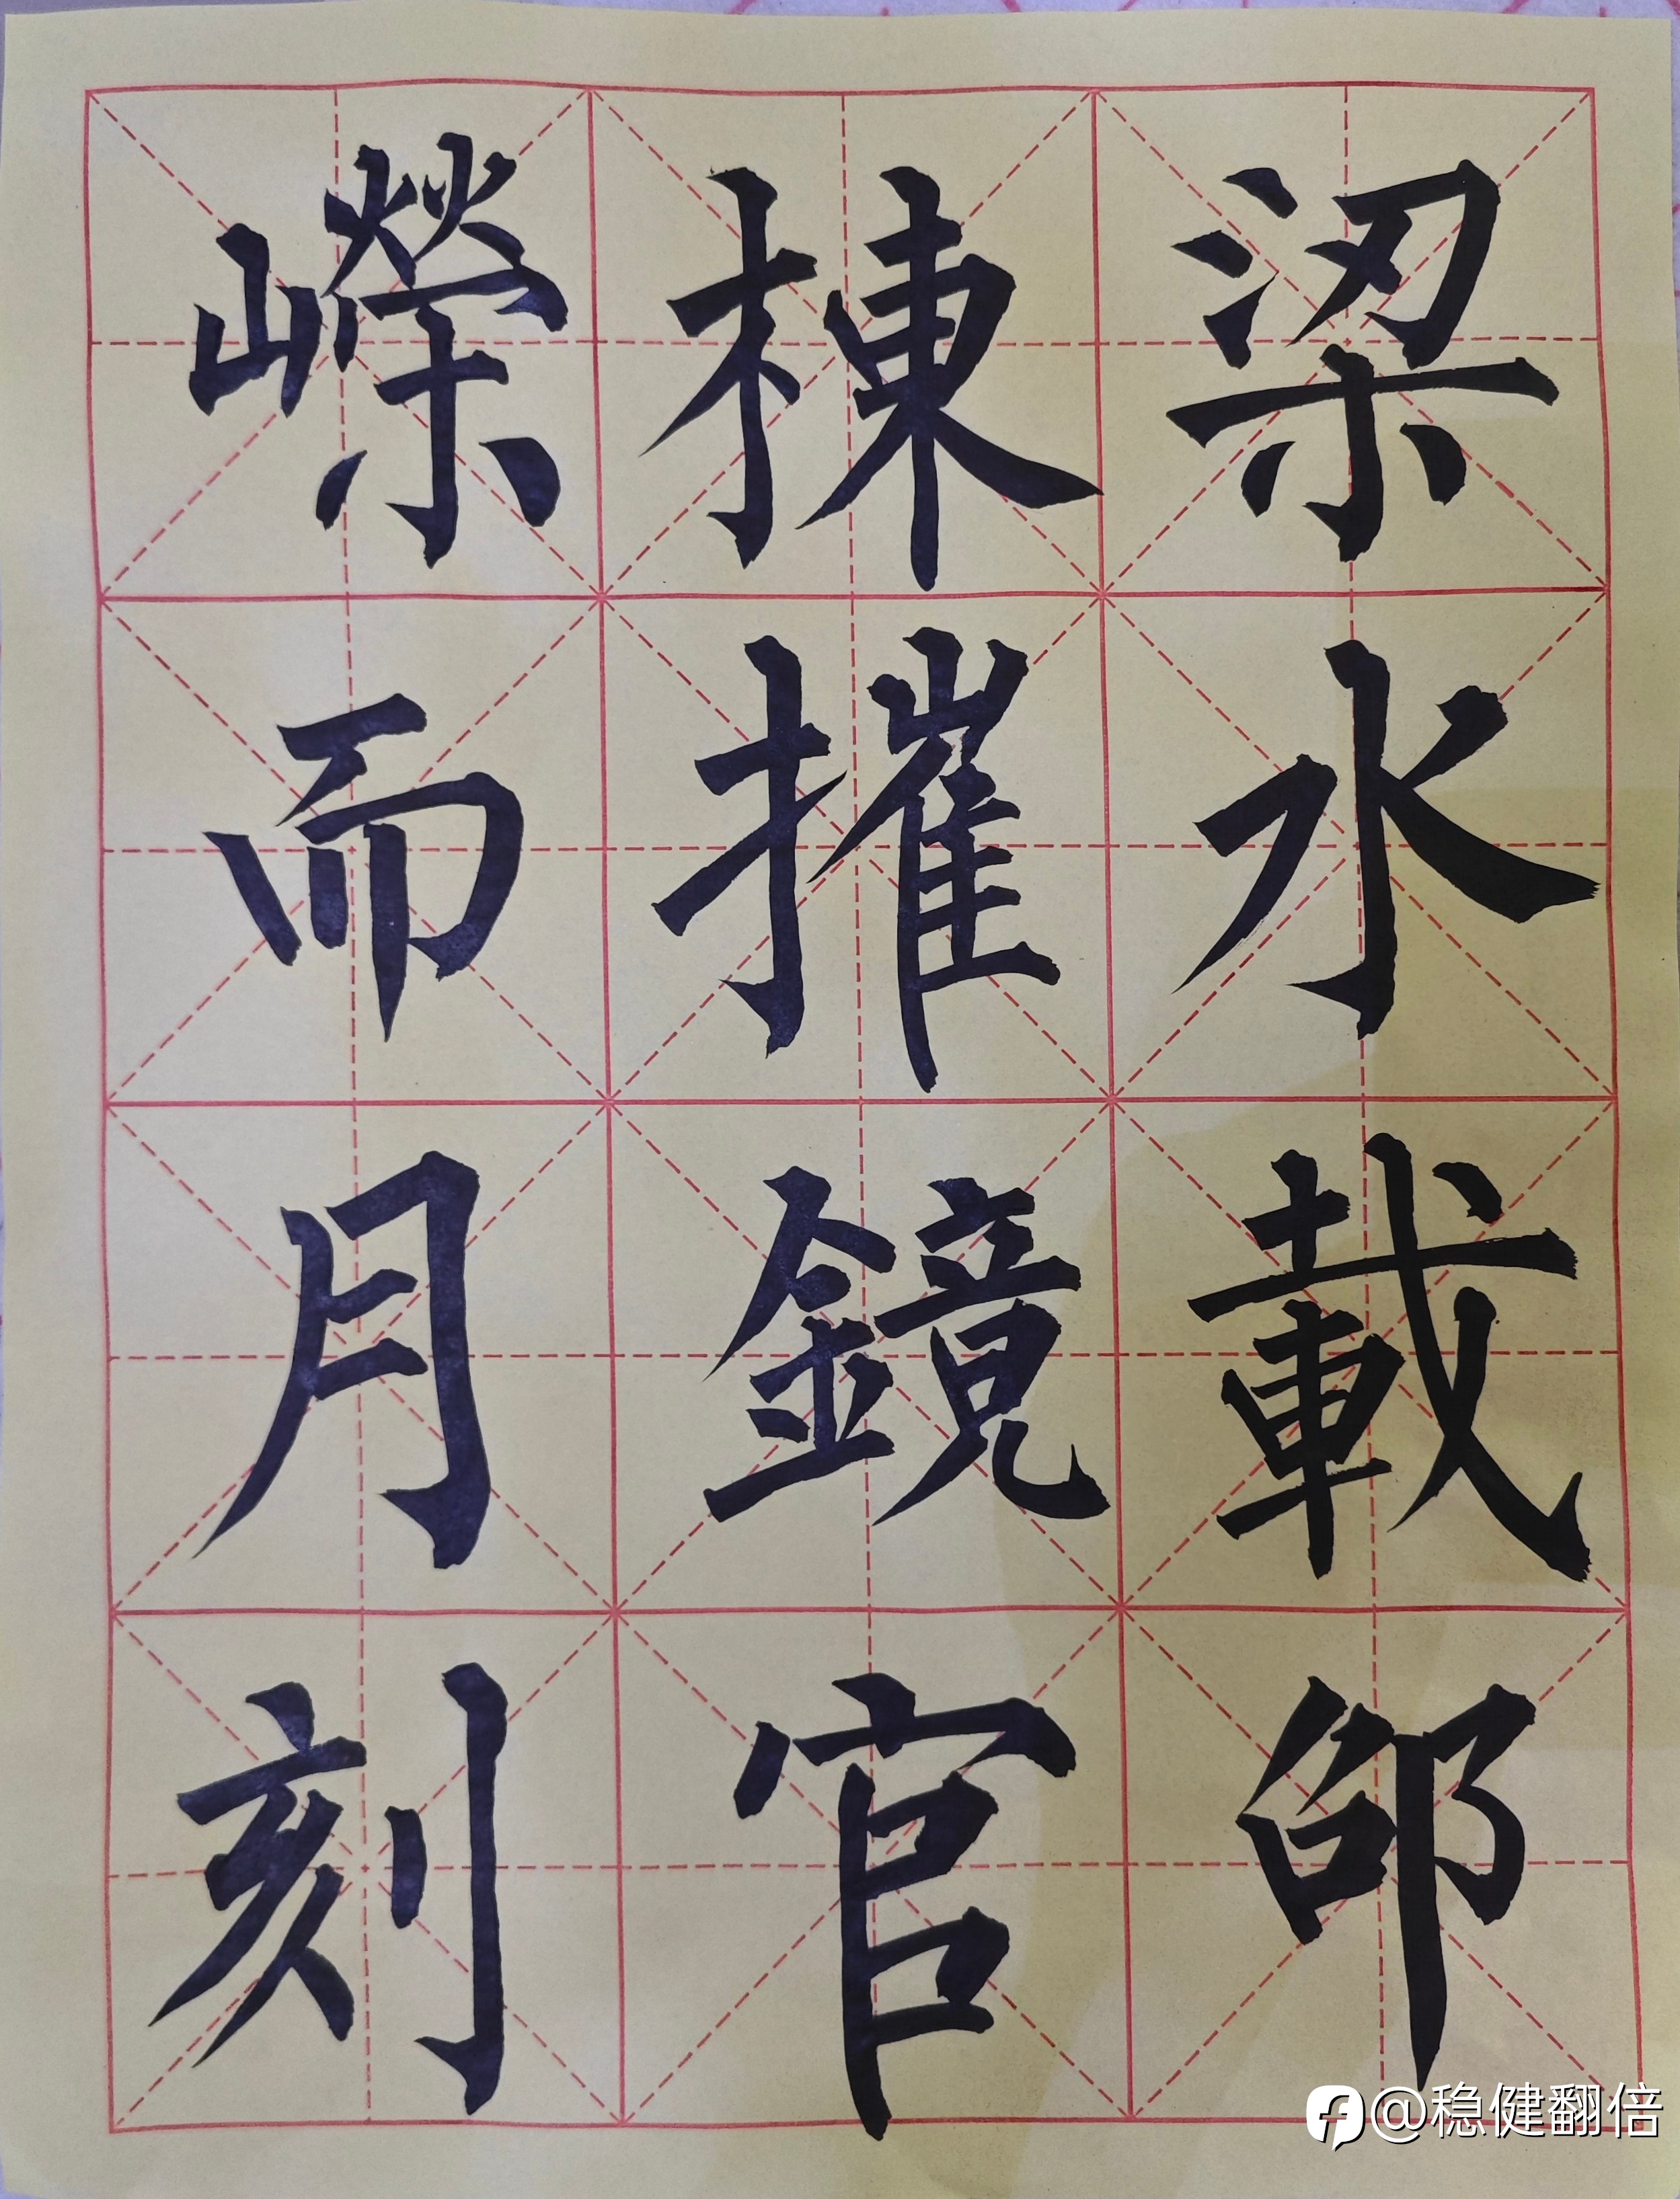 梁水載邵
棟摧鏡官
嶸而月刻
@稳健翻倍